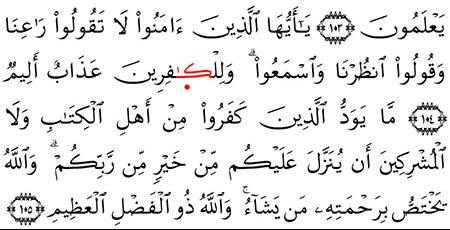 يَعْلَمُونَ ﴿١٠٣﴾ يَـٰٓأَيُّهَا ٱلَّذِينَ ءَامَنُوا۟ لَا تَقُولُوا۟ رَٰعِنَا
وَقُولُوا۟ ٱنظُرْنَا وَٱسْمَعُوا۟ ۗ وَلِلْكَـٰفِرِينَ عَذَابٌ أَلِيمٌ
﴿١٠٤﴾ مَّا يَوَدُّ ٱلَّذِينَ كَفَرُوا۟ مِنْ أَهْلِ ٱلْكِتَـٰبِ وَلَا
ٱلْمُشْرِكِينَ أَن يُنَزَّلَ عَلَيْكُم مِّنْ خَيْرٍ مِّن رَّبِّكُمْ ۗ وَٱللَّهُ
يَخْتَصُّ بِرَحْمَتِهِۦ مَن يَشَآءُ ۚ وَٱللَّهُ ذُو ٱلْفَضْلِ ٱلْعَظِيمِ ﴿١٠٥﴾